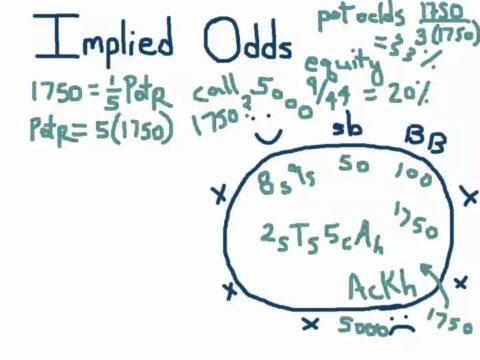 Implied Odds
pot odds 1750
3(1750)
= 33%
equity
9/44 = 20%
1750 = 1/5 PotR
PotR = 5(1750)
call 5000
1750?
sb BB
8s9s 50 100
2sTs5cAh 1750
AcKh
5000 1750